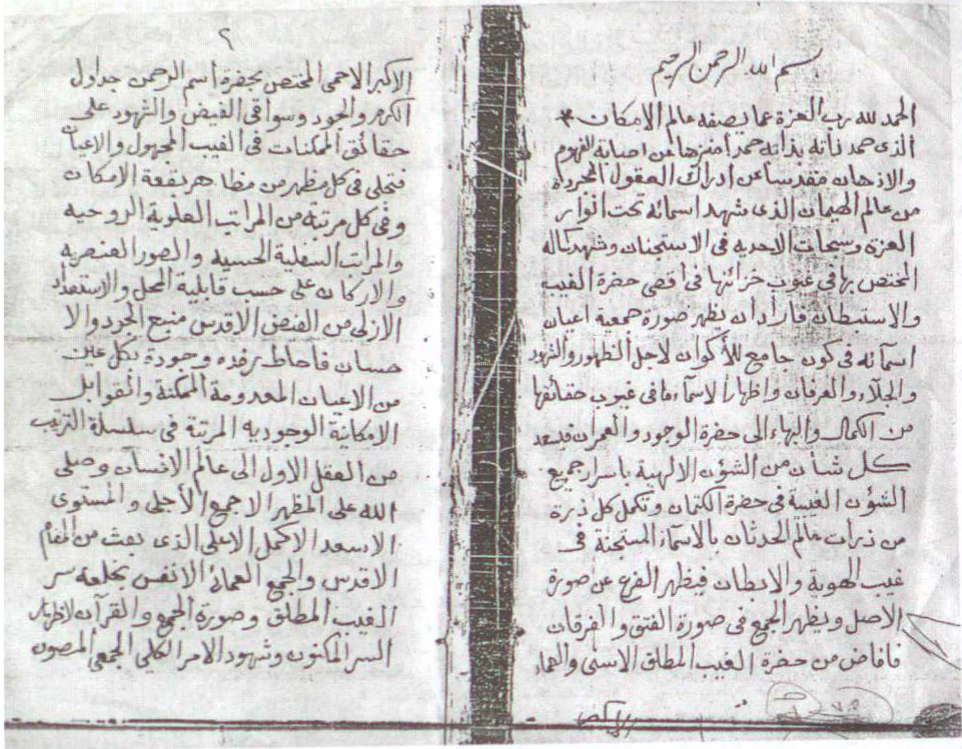 بسم الله الرحمن الرحيم
الحمد لله رب العزة عما يصفه عالم الامكان *
الذى حمد ذاته بذاته حمدا منزها عن اصابة الفهوم
والاذهان مقدسا عن ادراك العقول المجرداة
من عالم الهيمان الذى شهد اسمائه تحت انوار
العزة وسبحات الاحديه فى الاستجنان وشهد كماله
المختص بها فى غيوب خزائنها فى اقصى حضرة الغيب
والاستبطان فاراد ان يظهر صورة جمعية اعيان
اسمآئه فى كون جامع للأكوان لاجل الظهور والشهود
والجلاء والعرفان واظهار الاسمآء ما فى غيوب حقائقها
من الكمال والبهاء الى حضرة الوجود والعمران فيسعد
كل شأن من الشؤن الالهية باسرار جميع
الشؤن الغيبية فى حضرة الكتمان وتكمل كل ذرة
من ذرات عالم الحدثان بالاسمآء المستجنة فى
غيب الهوية والابطان فيظهر الفرع عن صورة
الاصل ويظهر الجمع فى صورة الفتق والفرقان
فافاض من حضرة الغيب المطلق الاسنى والعماء
الاكبر
٢
الاكبر الاحمى المختص بحضرة اسم الرحمن جداول
الكرم والجود وسواقى الفيض والشهود على
حقائق الممكنات فى الغيب المجهول والاعيان
فتجلى فى كل مظهر من مظاهر بقعة الامكان
وفى كل مرتبة من المراتب العلوية الروحيه
والمراتب السفلية الحسيه والصور العنصريه
والاركان على حسب قابلية المحل والاستعداد
الازلى من الفيض الاقدس منبع الجود والا
حسان فاحاط برفده وجودة بكل عين
من الاعيان المعدومة الممكنة والقوابل
الامكانية الوجوديه المرتبة فى سلسلة الترتيب
من العقل الاول الى عالم الانسان وصلى
الله على المظهر الاجمع الأجلى والمستوى
الاسعد الاكمل الاعلى الذى بعث من المقام
الاقدس والجمع العمائ الانفس بخلعة سر
الغيب المطلق وصورة الجمع والقرآن لاظهار
السر المكنون وشهود الامر الكلى الجمعى المصون